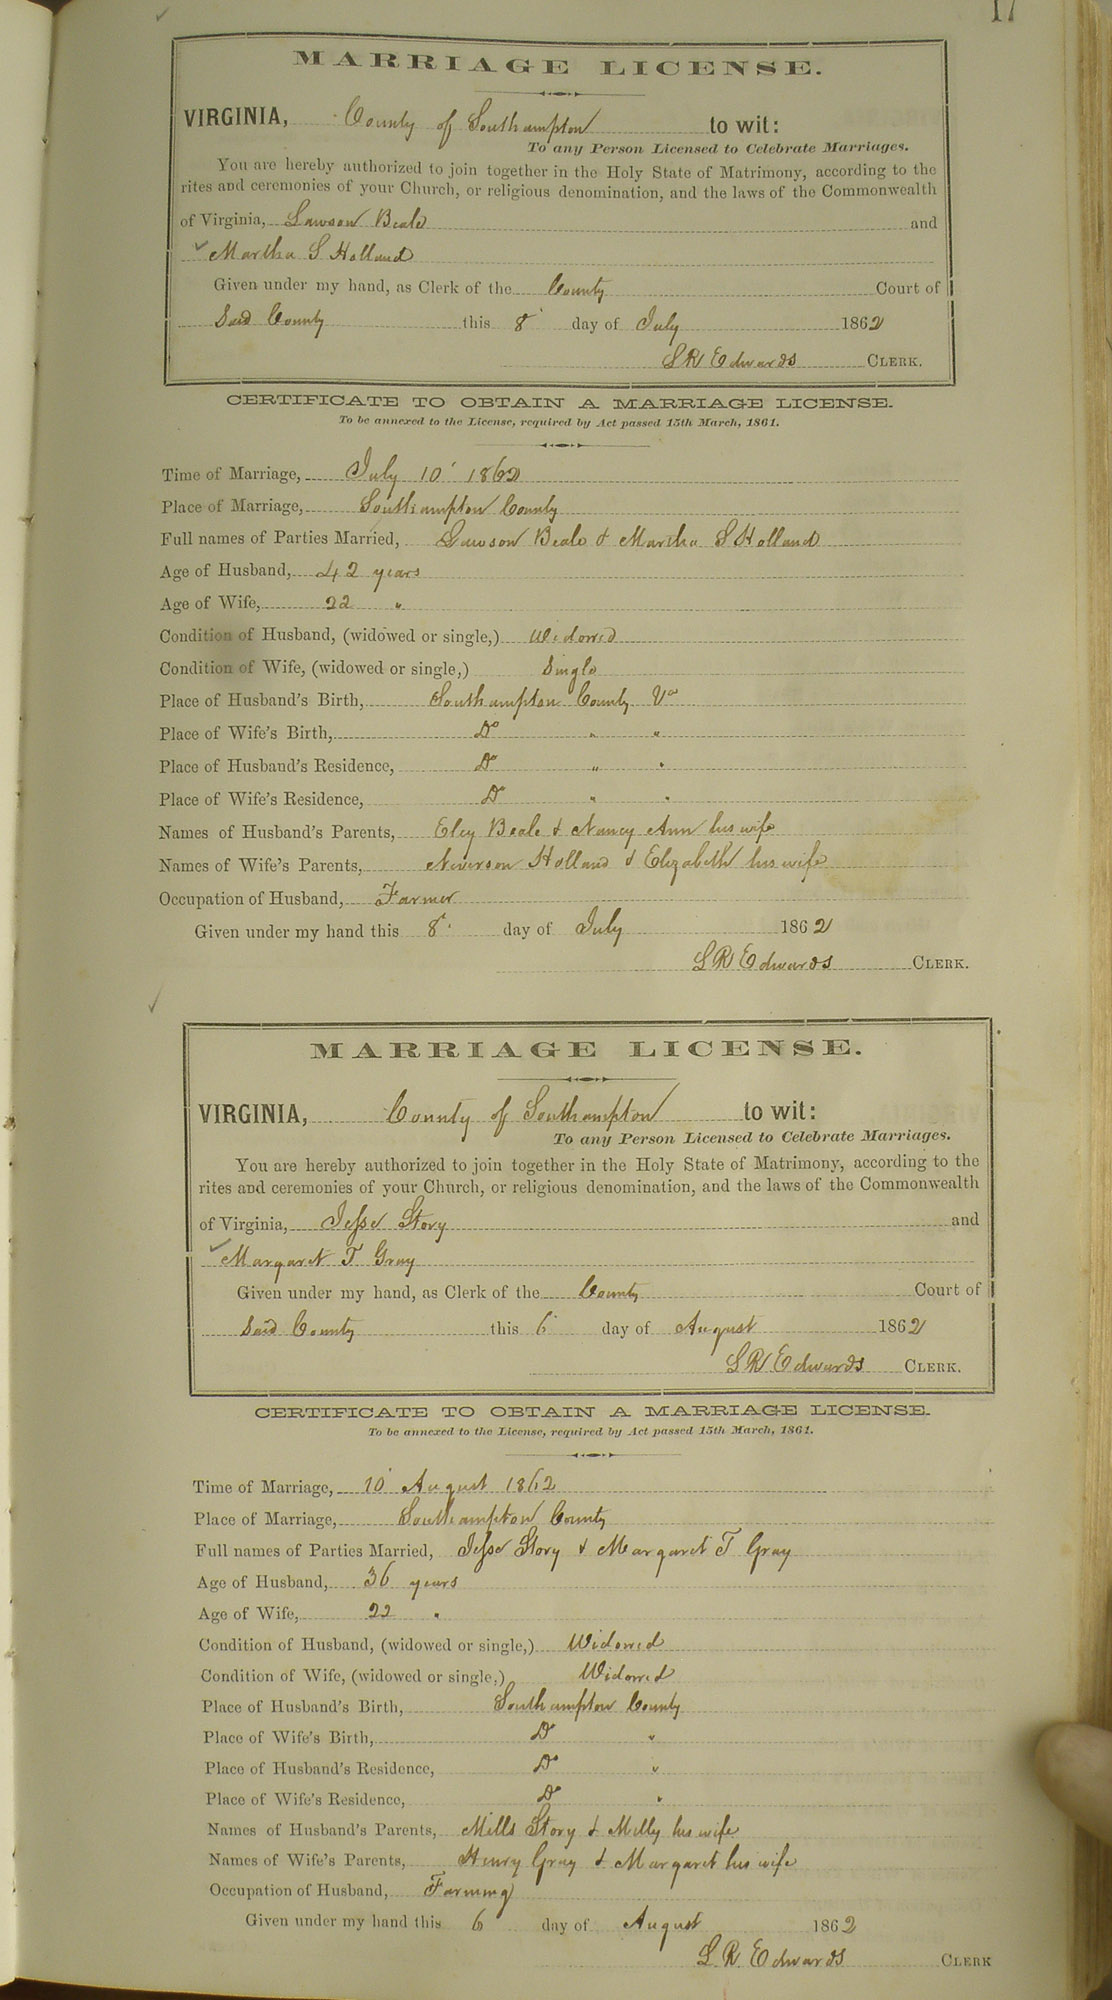 17
MARRIAGE LICENSE.
VIRGINIA, County of Southampton to wit:
To any Person Licensed to Celebrate Marriages.
You are hereby authorized to join together in the Holy State of Matrimony, according to the
rites and ceremonies of your Church, or religious denomination, and the laws of the Commonwealth
of Virginia, Lawson Beale and
Martha S Holland
Given under my hand, as Clerk of the County Court of
Said County this 8 day of July 1862
L R Edwards CLERK.
CERTIFICATE TO OBTAIN A MARRIAGE LICENSE.
To be annexed to the License, required by Act passed 15th March, 1861.
Time of Marriage, July 10 1862
Place of Marriage, Southampton County
Full names of Parties Married, Lawson Beale & Martha S Holland
Age of Husband, 42 years
Age of Wife, 22 "
Condition of Husband, (widowed or single,) Widowed
Condition of Wife, (widowed or single,) Single
Place of Husband's Birth, Southampton County Va
Place of Wife's Birth, Do " "
Place of Husband's Residence, Do " "
Place of Wife's Residence, Do " "
Names of Husband's Parents, Eley Beale & Nancy Ann his wife
Names of Wife's Parents, Niverson Holland & Elizabeth his wife
Occupation of Husband, Farmer
Given under my hand this 8 day of July 1862
L R Edwards CLERK.
MARRIAGE LICENSE.
VIRGINIA, County of Southampton to wit:
To any Person Licensed to Celebrate Marriages.
You are hereby authorized to join together in the Holy State of Matrimony, according to the
rites and ceremonies of your Church, or religious denomination, and the laws of the Commonwealth
of Virginia, Jesse Story and
Margaret T Gray
Given under my hand, as Clerk of the County Court of
Said County this 6 day of August 1862
L R Edwards CLERK.
CERTIFICATE TO OBTAIN A MARRIAGE LICENSE.
To be annexed to the License, required by Act passed 15th March, 1861.
Time of Marriage, 10 August 1862
Place of Marriage, Southampton County
Full names of Parties Married, Jesse Story & Margaret T Gray
Age of Husband, 36 years
Age of Wife, 22 "
Condition of Husband, (widowed or single,) Widowed
Condition of Wife, (widowed or single,) Widowed
Place of Husband's Birth, Southampton County
Place of Wife's Birth, Do "
Place of Husband's Residence, Do "
Place of Wife's Residence, Do "
Names of Husband's Parents, Mills Story & Milly his wife
Names of Wife's Parents, Henry Gray & Margaret his wife
Occupation of Husband, Farming
Given under my hand this 6 day of August 1862
L R Edwards CLERK